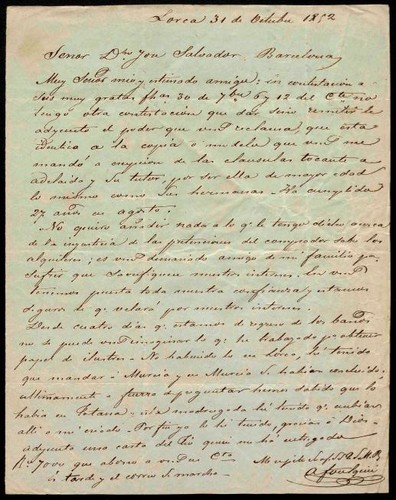 Lorca 31 de Octubre 1852
Señor Dn Jon Salvador Barcelona
Muy Señor mio y estimado amigo: in contestacion a
sus muy gratas fhas 30 de 7bre 6 y 12 del Cte no
tengo otra contestacion que dar sino remitirle
adjunto el poder que vmd reclama, que está
identico a la copia o modelo que vmd me
mandó a excepcion de las clausulas tocante a
adelaida y su tutor, por ser ella de mayor edad
lo mismo como sus hermanas. Ha cumplido
27 años en agosto.
No quiero añadir nada a lo q. le tengo dicho acerca
de la injusticia de las pretenciones del comprador sobre los
alquileres; es vmd demasiado amigo de mi familia pa
sufrir que sacrifiquen nuestros interes. En vmd
tenemos puesta toda nuestra confianza y estamos
seguros q. velará por nuestros interes.
Desde cuatro dias q. estamos de regreso de los baños
no se puede vmd imaginar lo q. he trabajado pa obtener
papel de ilustres. No habiendo lo en Lorca, he tenido
que mandar a Murcia y en Murcia se habian concluido.
ultimamente a fuerza de preguntar hemos sabido que lo
habia en Totana. a la madrugada he tenido q. embiar
alli a mi criado. Por fin yo le he tenido, gracias a Dios.
adjunto una carta de quien me ha entregado
Rs 7000 que abono a vmd en Cta
Es tarde y el correo se marcha